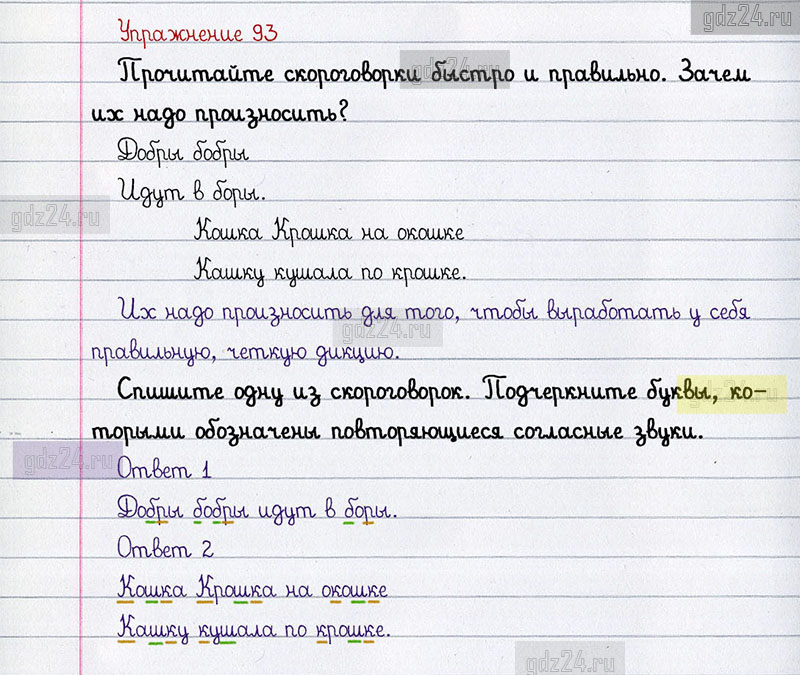 gdz24.ru
Упражнение 93
Прочитайте скороговорки быстро и правильно. Зачем
gdz24.ru
их надо произносить?
Добры бобры
Идут в боры.
gdz24.ru
Кашка Крашка на окошке
Кашку кушала по крошке.
Их надо произносить для того, чтобы выработать у себя
gdz24.ru
правильную, четкую дикцию.
Спишите одну из скороговорок. Подчеркните буквы, ко-
gdz24.ru
торыми обозначены повторяющиеся согласные звуки.
gdz24.ru
Ответ 1
Добры бобры идут в боры.
Ответ 2
Кашка Крашка на окошке
Кашку кушала по крошке.
gdz24.ru